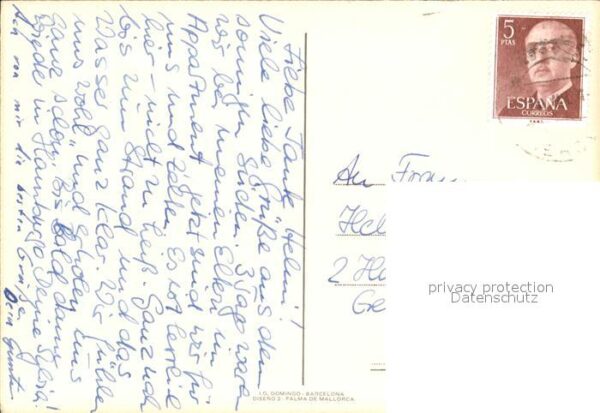 Liebe Tante Helmi!
Viele liebe Grüße aus dem
sonnigen Süden. 3 Tage waren
wir bei meinen Eltern im
Appartment, jetzt sind wir für
uns und baden. Es ist herrlich
hier – nicht zu heiß. Ganz nah
bis zum Strand und das
Wasser ganz klar. Wir fühlen
uns wohl und erholen uns
ganz schön. Bis bald dann
wieder in Hamburg. Deine Sylvia!
Auch von mir die besten Grüße
Dein
5
PTAS
ESPAÑA
CORREOS
An Frau
Hel
2 Ha
Ge
privacy protection
Datenschutz
I.G. DOMINGO - BARCELONA
DISEÑO 2 - PALMA DE MALLORCA